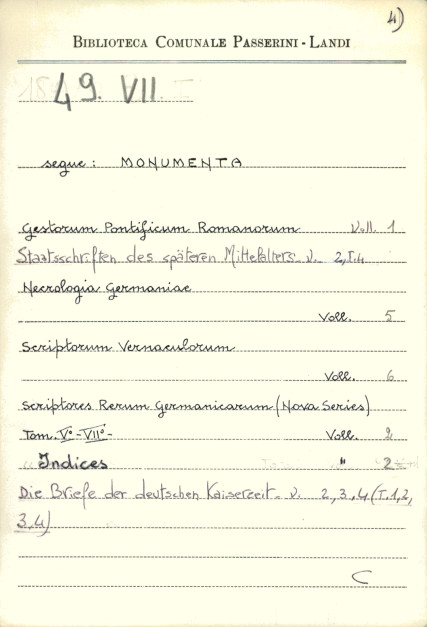 4)
BIBLIOTECA COMUNALE PASSERINI - LANDI
49. VII.
segue: MONUMENTA
Gestorum Pontificum Romanorum Voll. 1
Staatsschriften des späteren Mittelalters - v. 2, T. 4
Necrologia Germaniae
Voll. 5
Scriptorum Vernaculorum
Voll. 6
Scriptores Rerum Germanicarum (Nova Series)
Tom. V° - VII° - Voll. 2
Indices " 2
Die Briefe der deutschen Kaiserzeit - v. 2, 3, 4 (T. 1, 2,
3, 4)
C